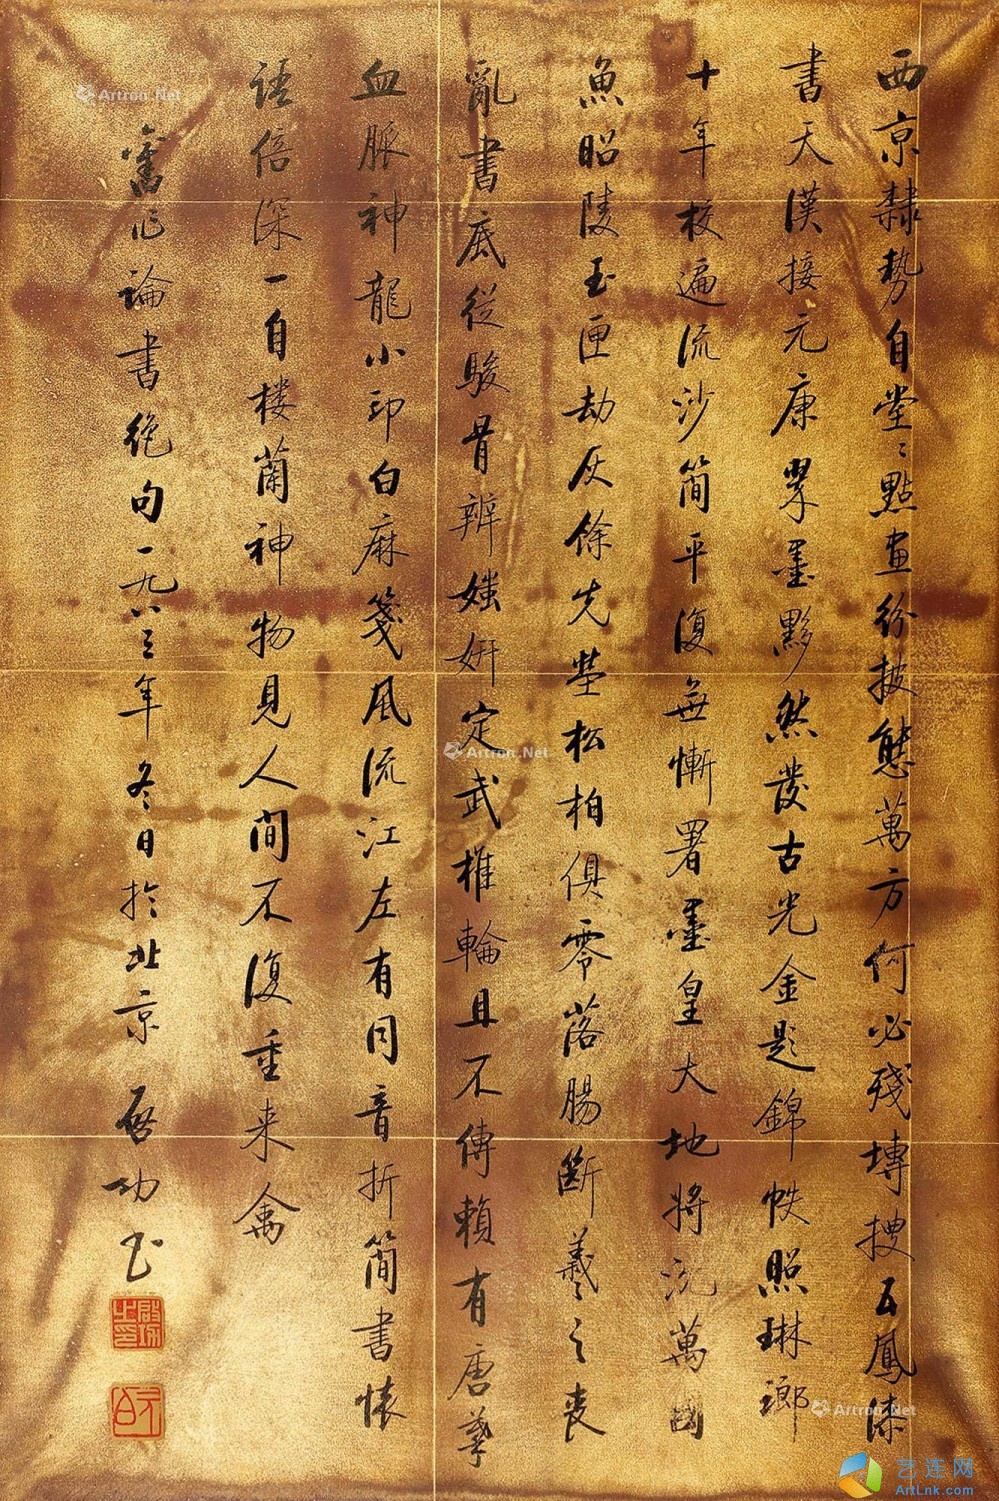 西京隸勢自堂〻點畫紛披態萬方何必殘塼搜五鳳漆
書天漢接元康翠墨黟然發古光金題錦帙照琳瑯
十年校遍流沙簡平復無慚署墨皇大地將沉萬國
魚昭陵玉匣劫灰餘先塋松柏俱零落腸斷羲之喪
亂書底從駿骨辨媸妍定武椎輪且不傳賴有唐摹
血脈神龍小印白麻箋風流江左有同音折簡書懷
語倍深一自樓蘭神物見人間不復重來禽
舊作論書絕句一九八三年冬日於北京 啟功書
啟功之印
元白
Artron.Net
Artron.Net
Artron.Net
艺连网
ArtLnk.com